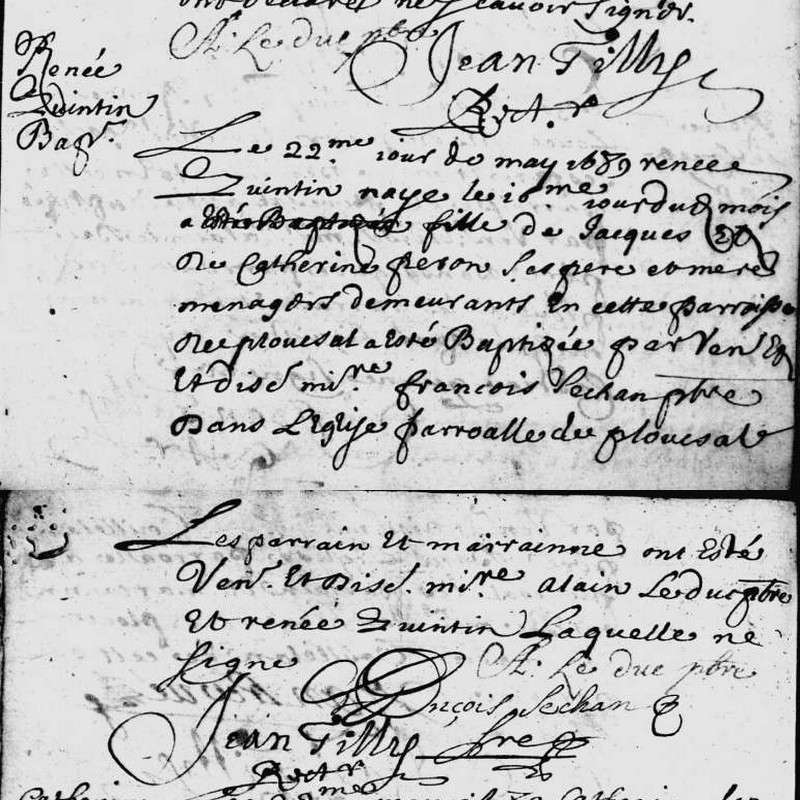 ont declaré ne sçavoir signer.
A. Le duc pbre
Jean Tilly
Rect.r
Renée
Quintin
Bapt.
Le 22.me iour de may 1689 renée
Quintin naye le 16.me iour dud mois
a esté Baptisée fille de Jacques Et
de Catherine peron ses pere et mere
menagers demeurants En cette parroisse
de plouesat a Esté Baptizée par Ven. Et
Et disc. mi.re francois Sechan pbre
Dans L'Eglise parroalle de plouesat
Les parrain Et marrainne ont Esté
Ven. Et Disc. mi.re alain Le duc pbre
Et renée Quintin Laquelle ne
signe
A. Le duc pbre
François Sechan
pbre
Jean Tilly
Rect.r